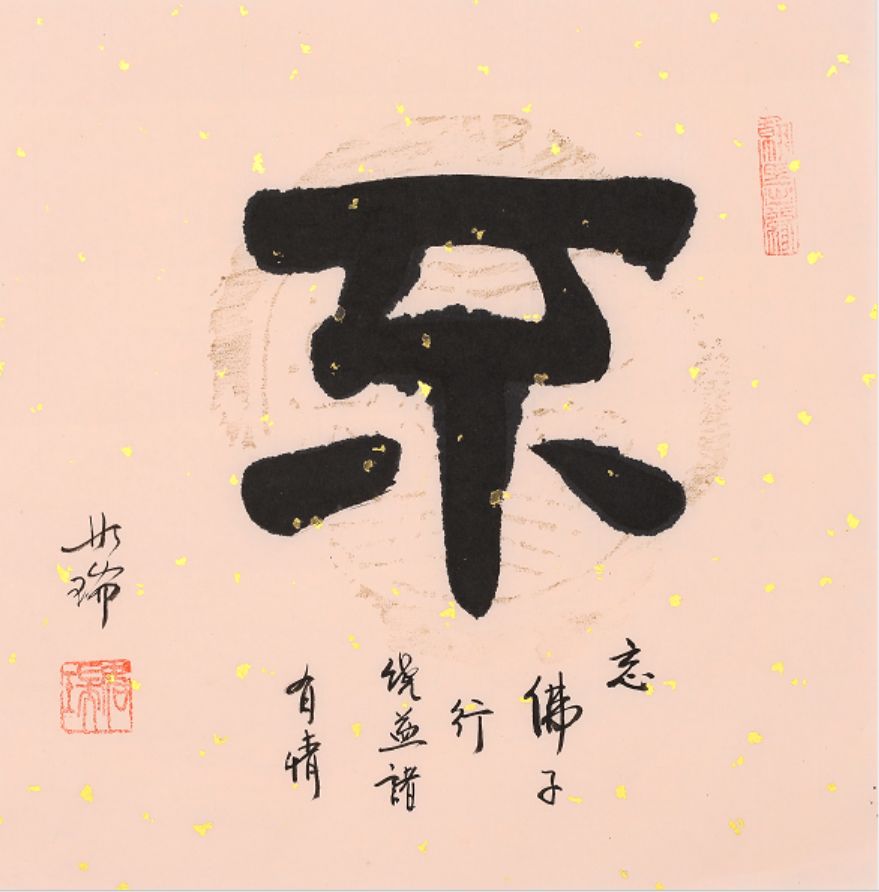 不
忘
佛子
行
饶益諸
有情
如瑞